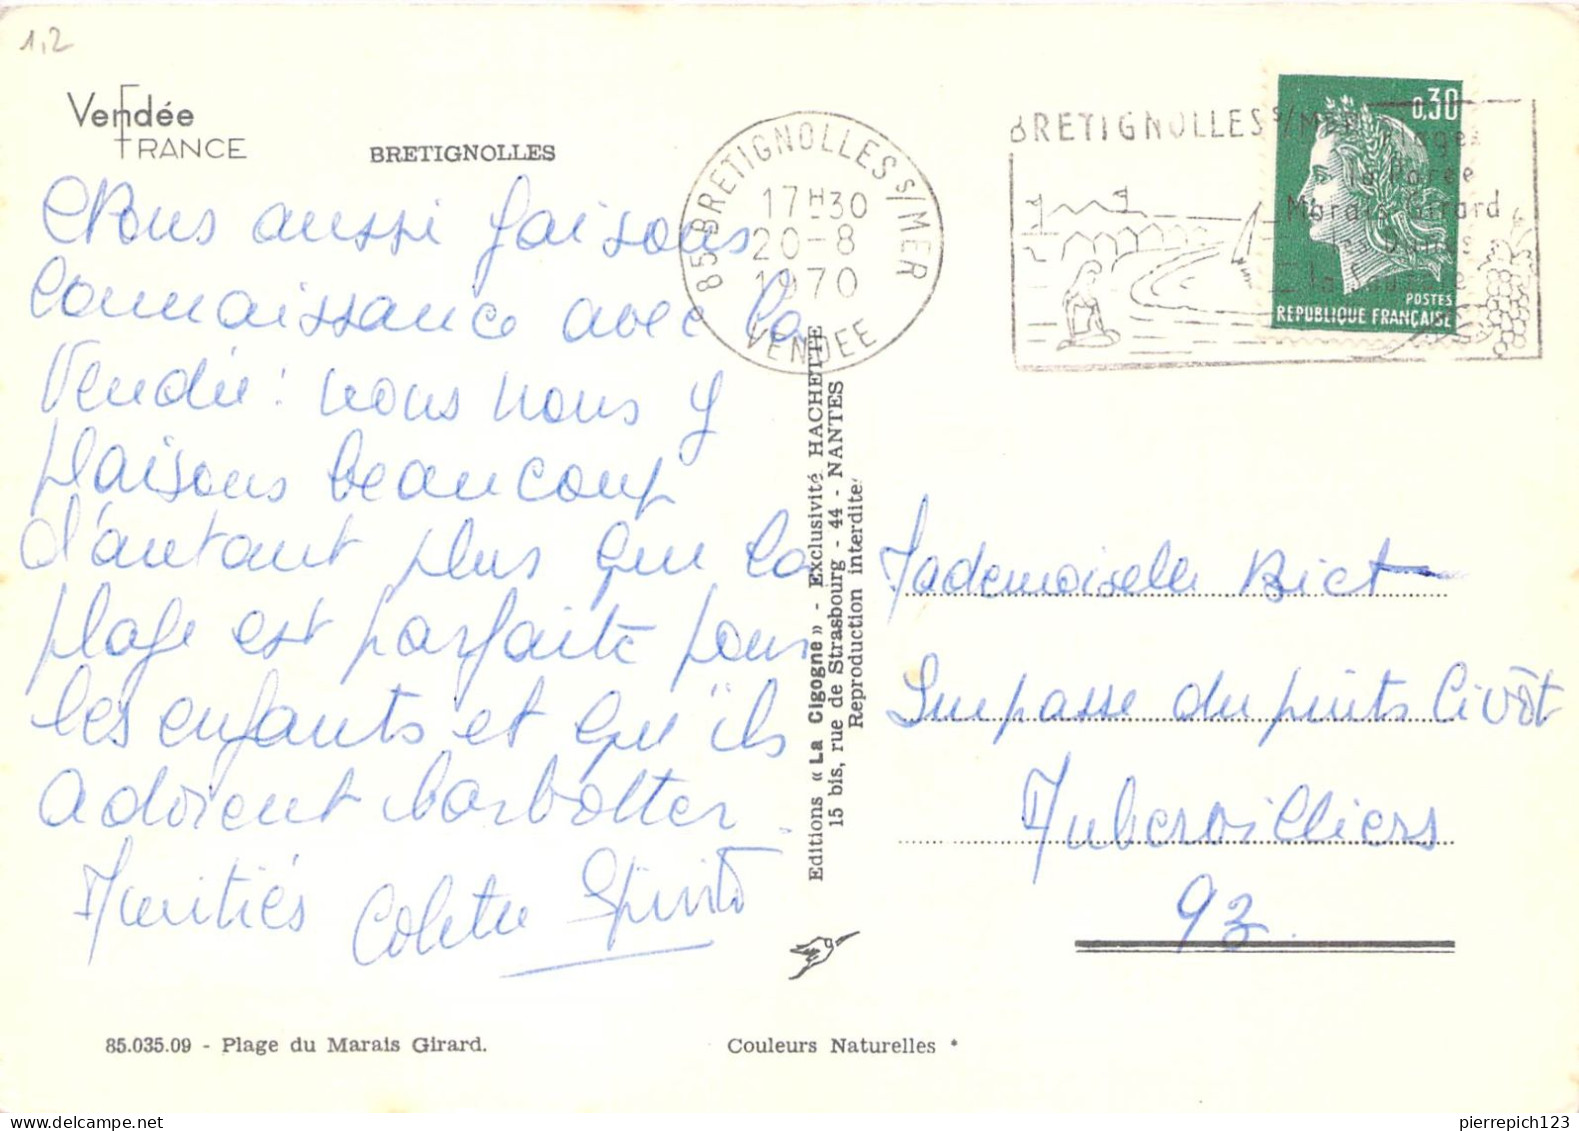 1,2
Vendée
FRANCE
BRETIGNOLLES
Nous aussi faisons
connaissance avec la
Vendée : nous nous y
plaisons beaucoup
d'autant plus que la
plage est parfaite pour
les enfants et qu'ils
adorent barbotter.
Amitiés Colette
85 BRETIGNOLLES S/MER
17H30
20-8
1970
VENDEE
BRETIGNOLLES s/MER
Plages
la Parée
Marais Girard
les Dunes
0,30
POSTES
REPUBLIQUE FRANÇAISE
Editions « La Cigogne » - Exclusivité HACHETTE
15 bis, rue de Strasbourg - 44 - NANTES
Reproduction interdite
Mademoiselle Bict
Impasse du puits Civôt
Aubervilliers
93
85.035.09 - Plage du Marais Girard.
Couleurs Naturelles *
pierrepich123